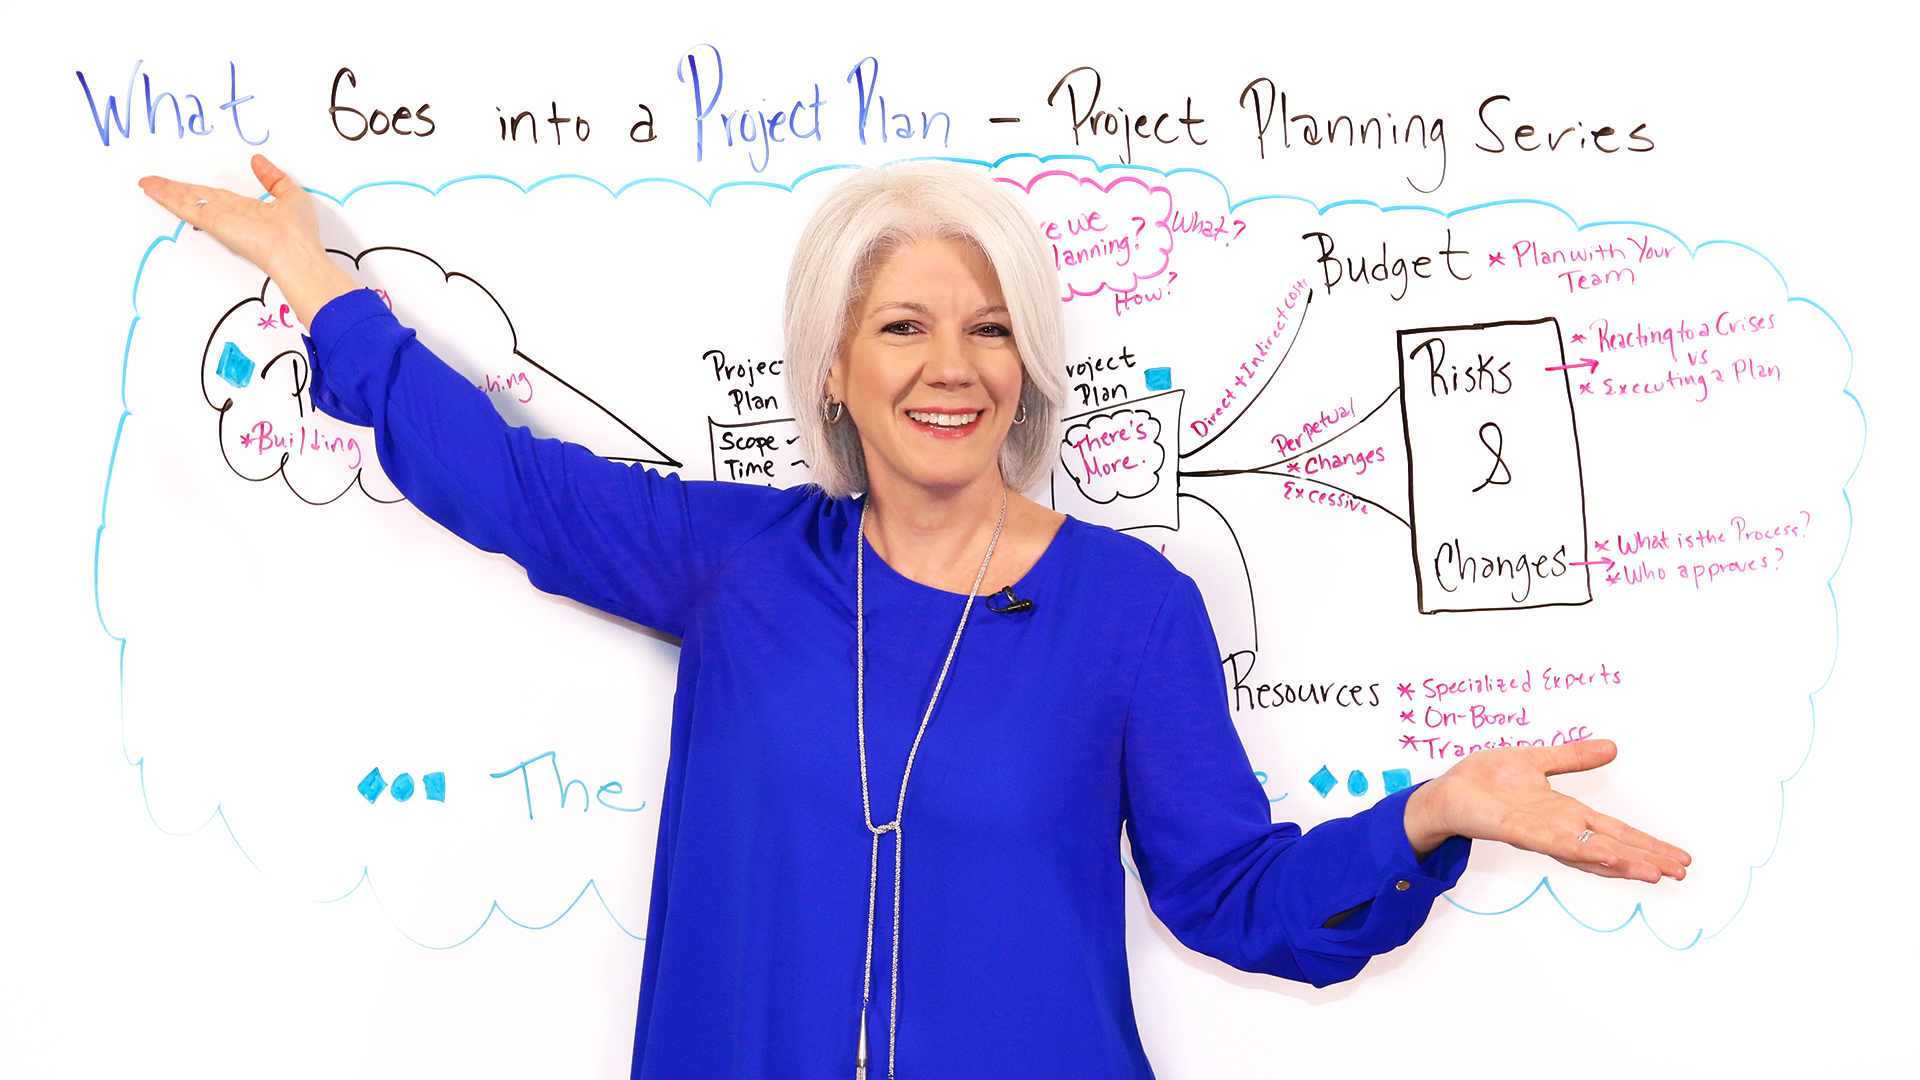 What Goes into a Project Plan - Project Planning Series
we
lanning?
What?
How?
Budget
* Plan with Your
Team
Direct + Indirect Costs
* Building
Project
Plan
Scope
Time
Plan
There's
More.
Perpetual
* Changes
Excessive
Risks
&
Changes
* Reacting to a Crises
vs
* Executing a Plan
* What is the Process?
* Who approves?
Resources
* Specialized Experts
* On-Board
* Transition Off
The